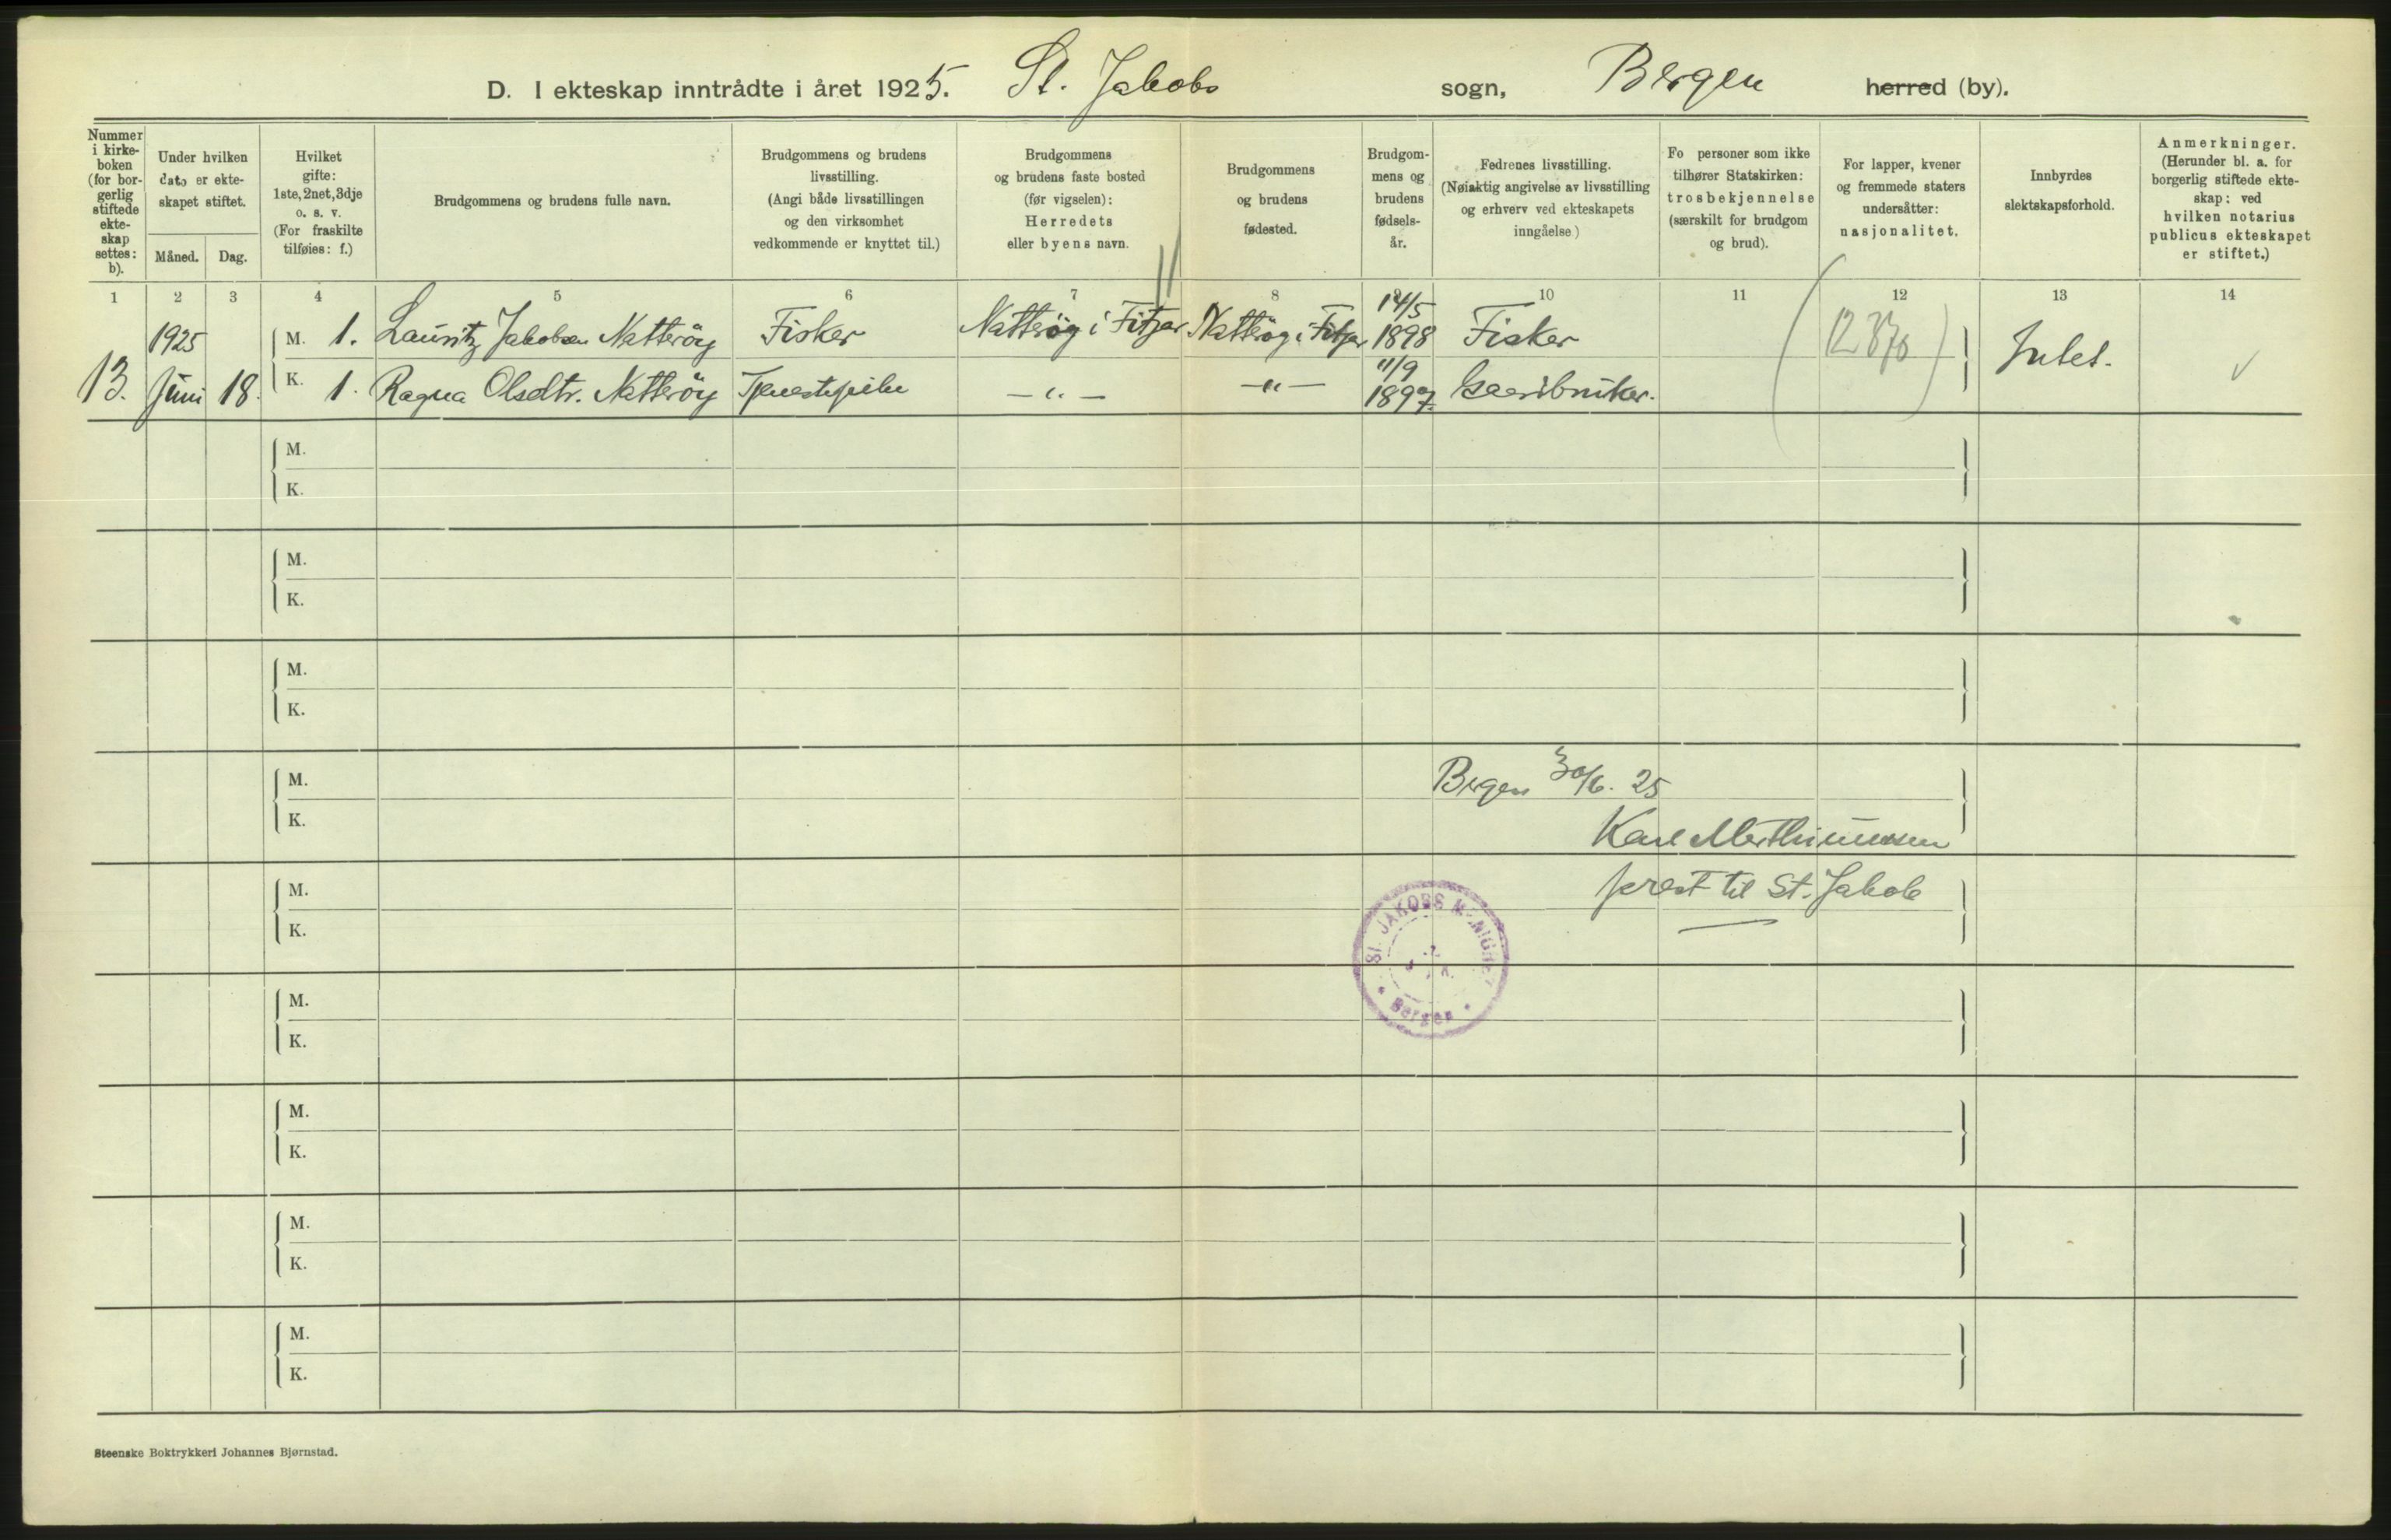 D. I ekteskap inntrådte i året 1925. St. Jakobs sogn, Bergen herred (by).
Nummer i kirke-boken (for bor-gerlig stiftede ekte-skap settes: b).
Under hvilken dato er ekte-skapet stiftet.
Måned. Dag.
Hvilket gifte: 1ste, 2net, 3dje o. s. v. (For fraskilte tilføies: f.)
Brudgommens og brudens fulle navn.
Brudgommens og brudens livsstilling. (Angi både livsstillingen og den virksomhet vedkommende er knyttet til.)
Brudgommens og brudens faste bosted (før vigselen): Herredets eller byens navn.
Brudgommens og brudens fødested.
Brudgom-mens og brudens fødsels-år.
Fedrenes livsstilling. (Nøiaktig angivelse av livsstilling og erhverv ved ekteskapets inngåelse)
Fo personer som ikke tilhører Statskirken: trosbekjennelse (særskilt for brudgom og brud).
For lapper, kvener og fremmede staters undersåtter: nasjonalitet.
Innbyrdes slektskapsforhold.
Anmerkninger. (Herunder bl. a. for borgerlig stiftede ekte-skap: ved hvilken notarius publicus ekteskapet er stiftet.)
1 2 3 4 5 6 7 8 9 10 11 12 13 14
1925 M. 1. Lauritz Jakobsen Natteröy Fisker Natteröy i Fitjar Natteröy i Fitjar 14/5 1898 Fisker
13. Juni 18. K. 1. Ragna Olsdtr. Natteröy Tjenestepike — " — — " — 11/9 1897 Gaardbruker. Intet.
M.
K.
M.
K.
M.
K.
M. Bergen 30/6. 25
K. Karl Marthinussen
M. prest til St. Jakob
K.
ST. JAKOBS MENIGHET
Bergen
M.
K.
M.
K.
M.
K.
M.
K.
Steenske Boktrykkeri Johannes Bjørnstad.